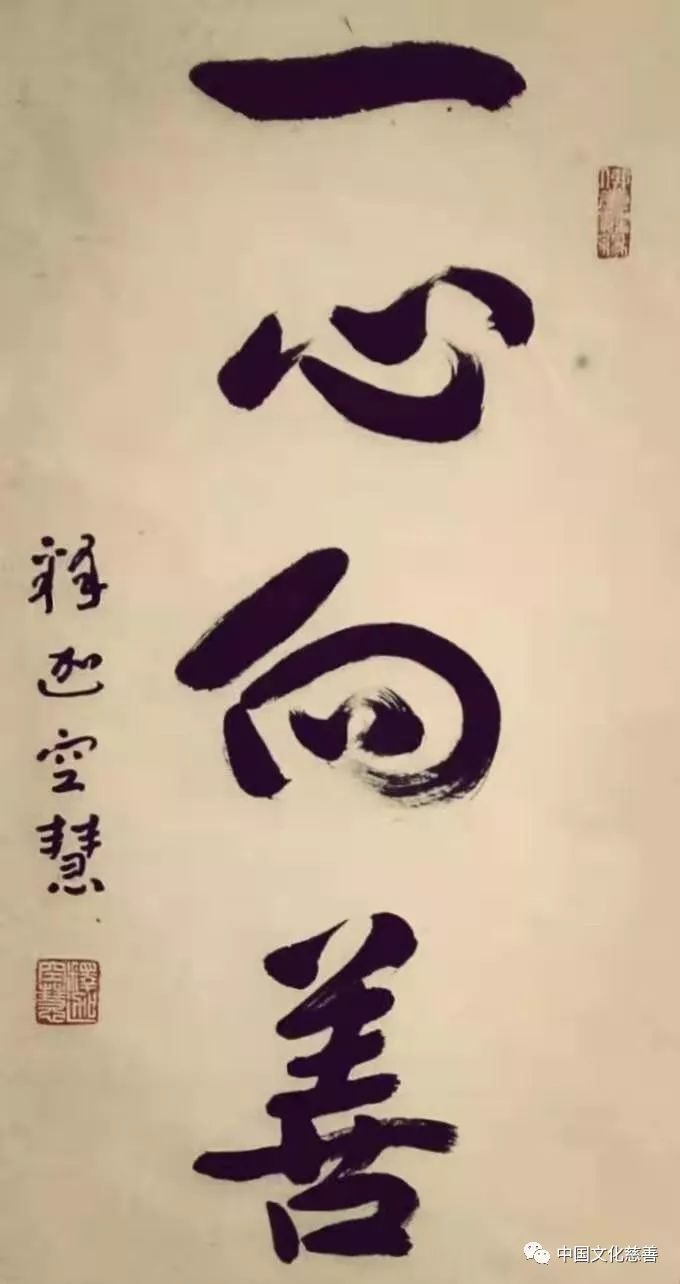 一心向善
释迦空慧
中国文化慈善